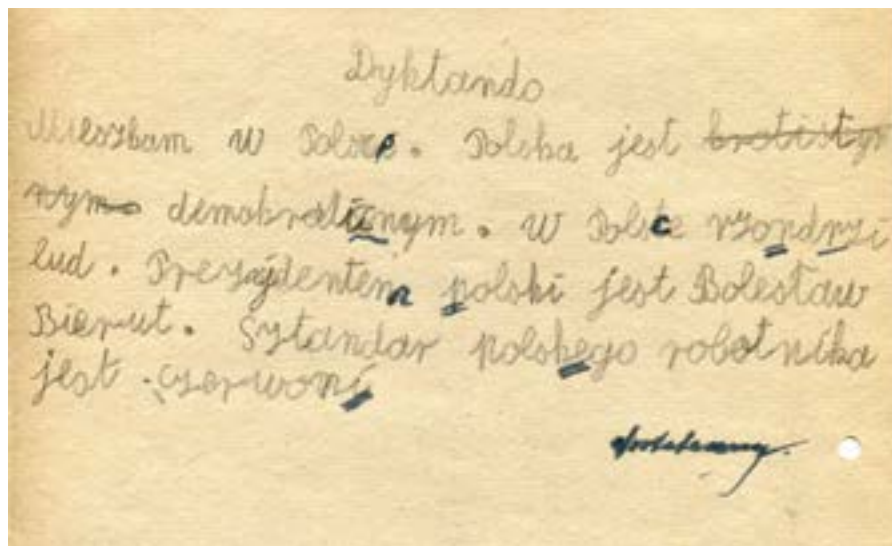 Dyktando
Mieszkam w Polsce. Polska jest
demokraticnym. W Polsce rzondzi
lud. Prezydentem polski jest Bolesław
Bierut. Sztandar polskego robotnika
jest czerwoni